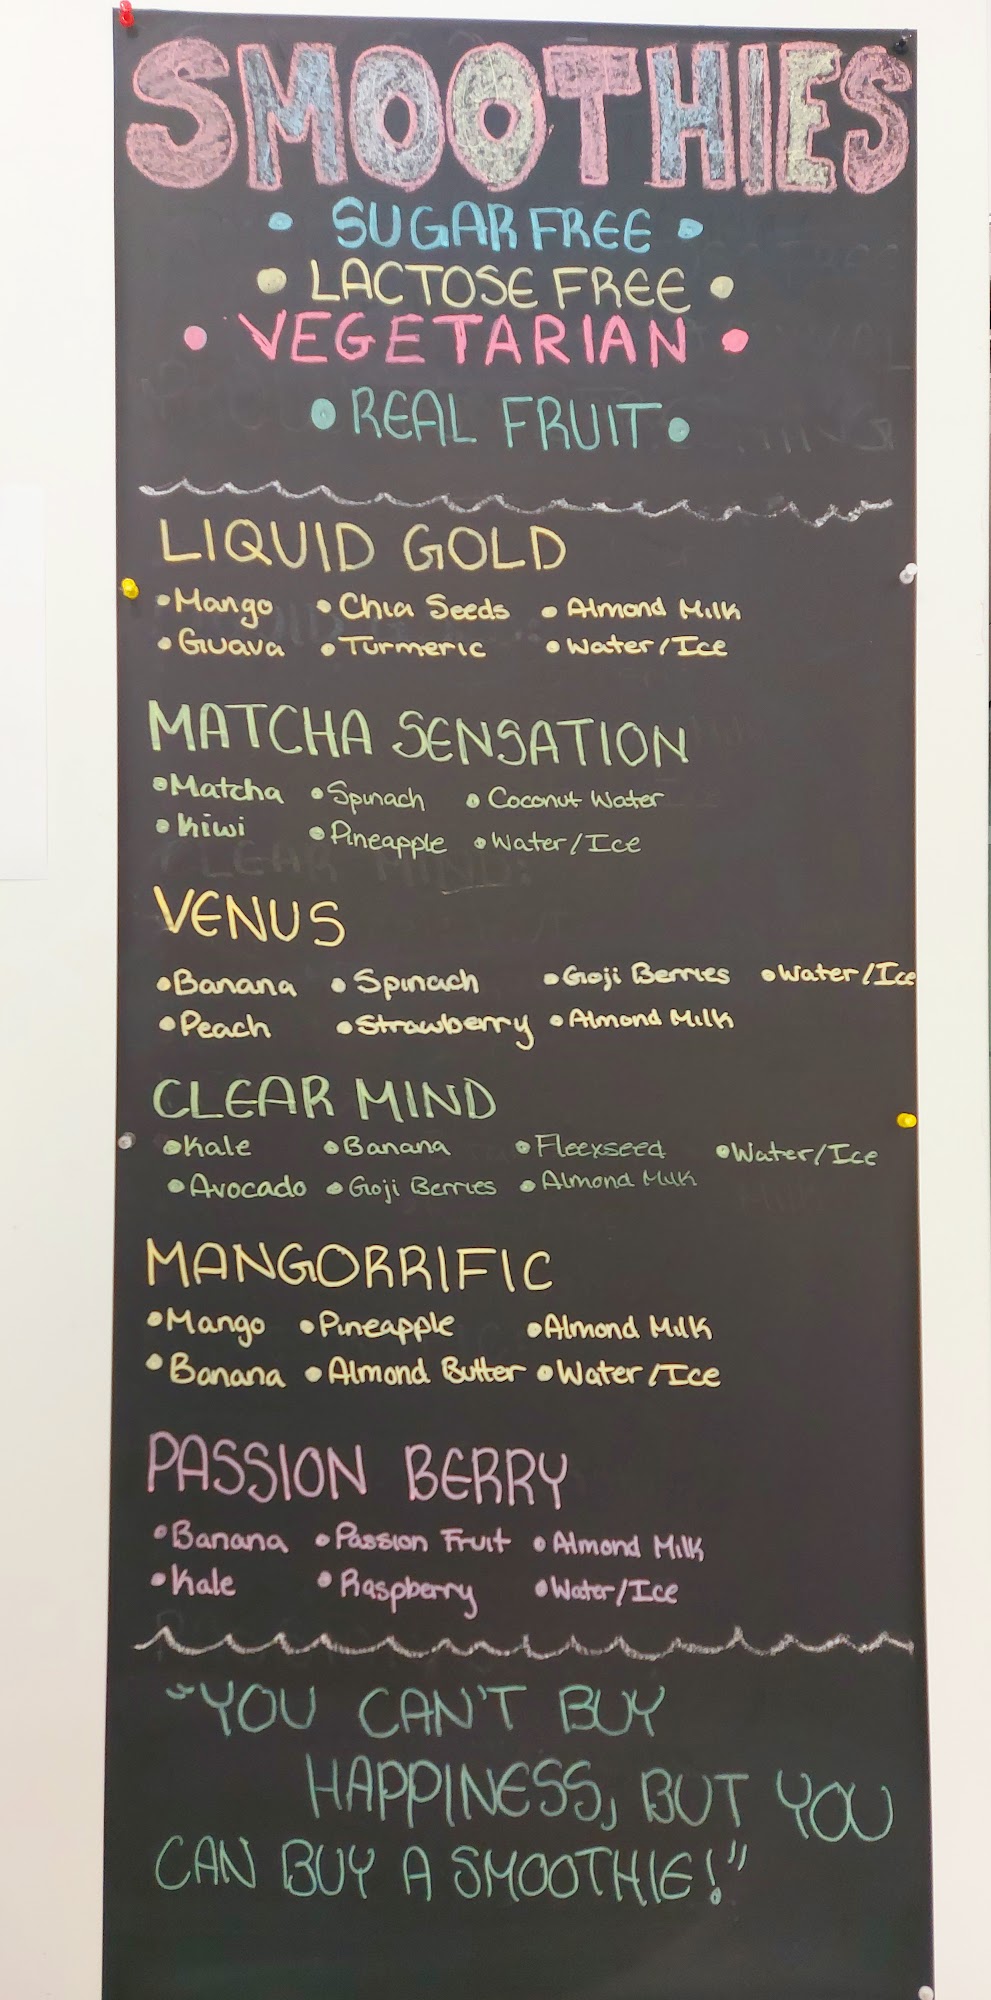 SMOOTHIES
• SUGAR FREE •
• LACTOSE FREE •
• VEGETARIAN •
• REAL FRUIT •
LIQUID GOLD
• Mango • Chia Seeds • Almond Milk
• Guava • Turmeric • Water/Ice
MATCHA SENSATION
• Matcha • Spinach • Coconut Water
• Kiwi • Pineapple • Water/Ice
VENUS
• Banana • Spinach • Goji Berries • Water/Ice
• Peach • Strawberry • Almond Milk
CLEAR MIND
• Kale • Banana • Fleexseed • Water/Ice
• Avocado • Goji Berries • Almond Milk
MANGORRIFIC
• Mango • Pineapple • Almond Milk
• Banana • Almond Butter • Water/Ice
PASSION BERRY
• Banana • Passion Fruit • Almond Milk
• Kale • Raspberry • Water/Ice
"YOU CAN'T BUY
HAPPINESS, BUT YOU
CAN BUY A SMOOTHIE!"